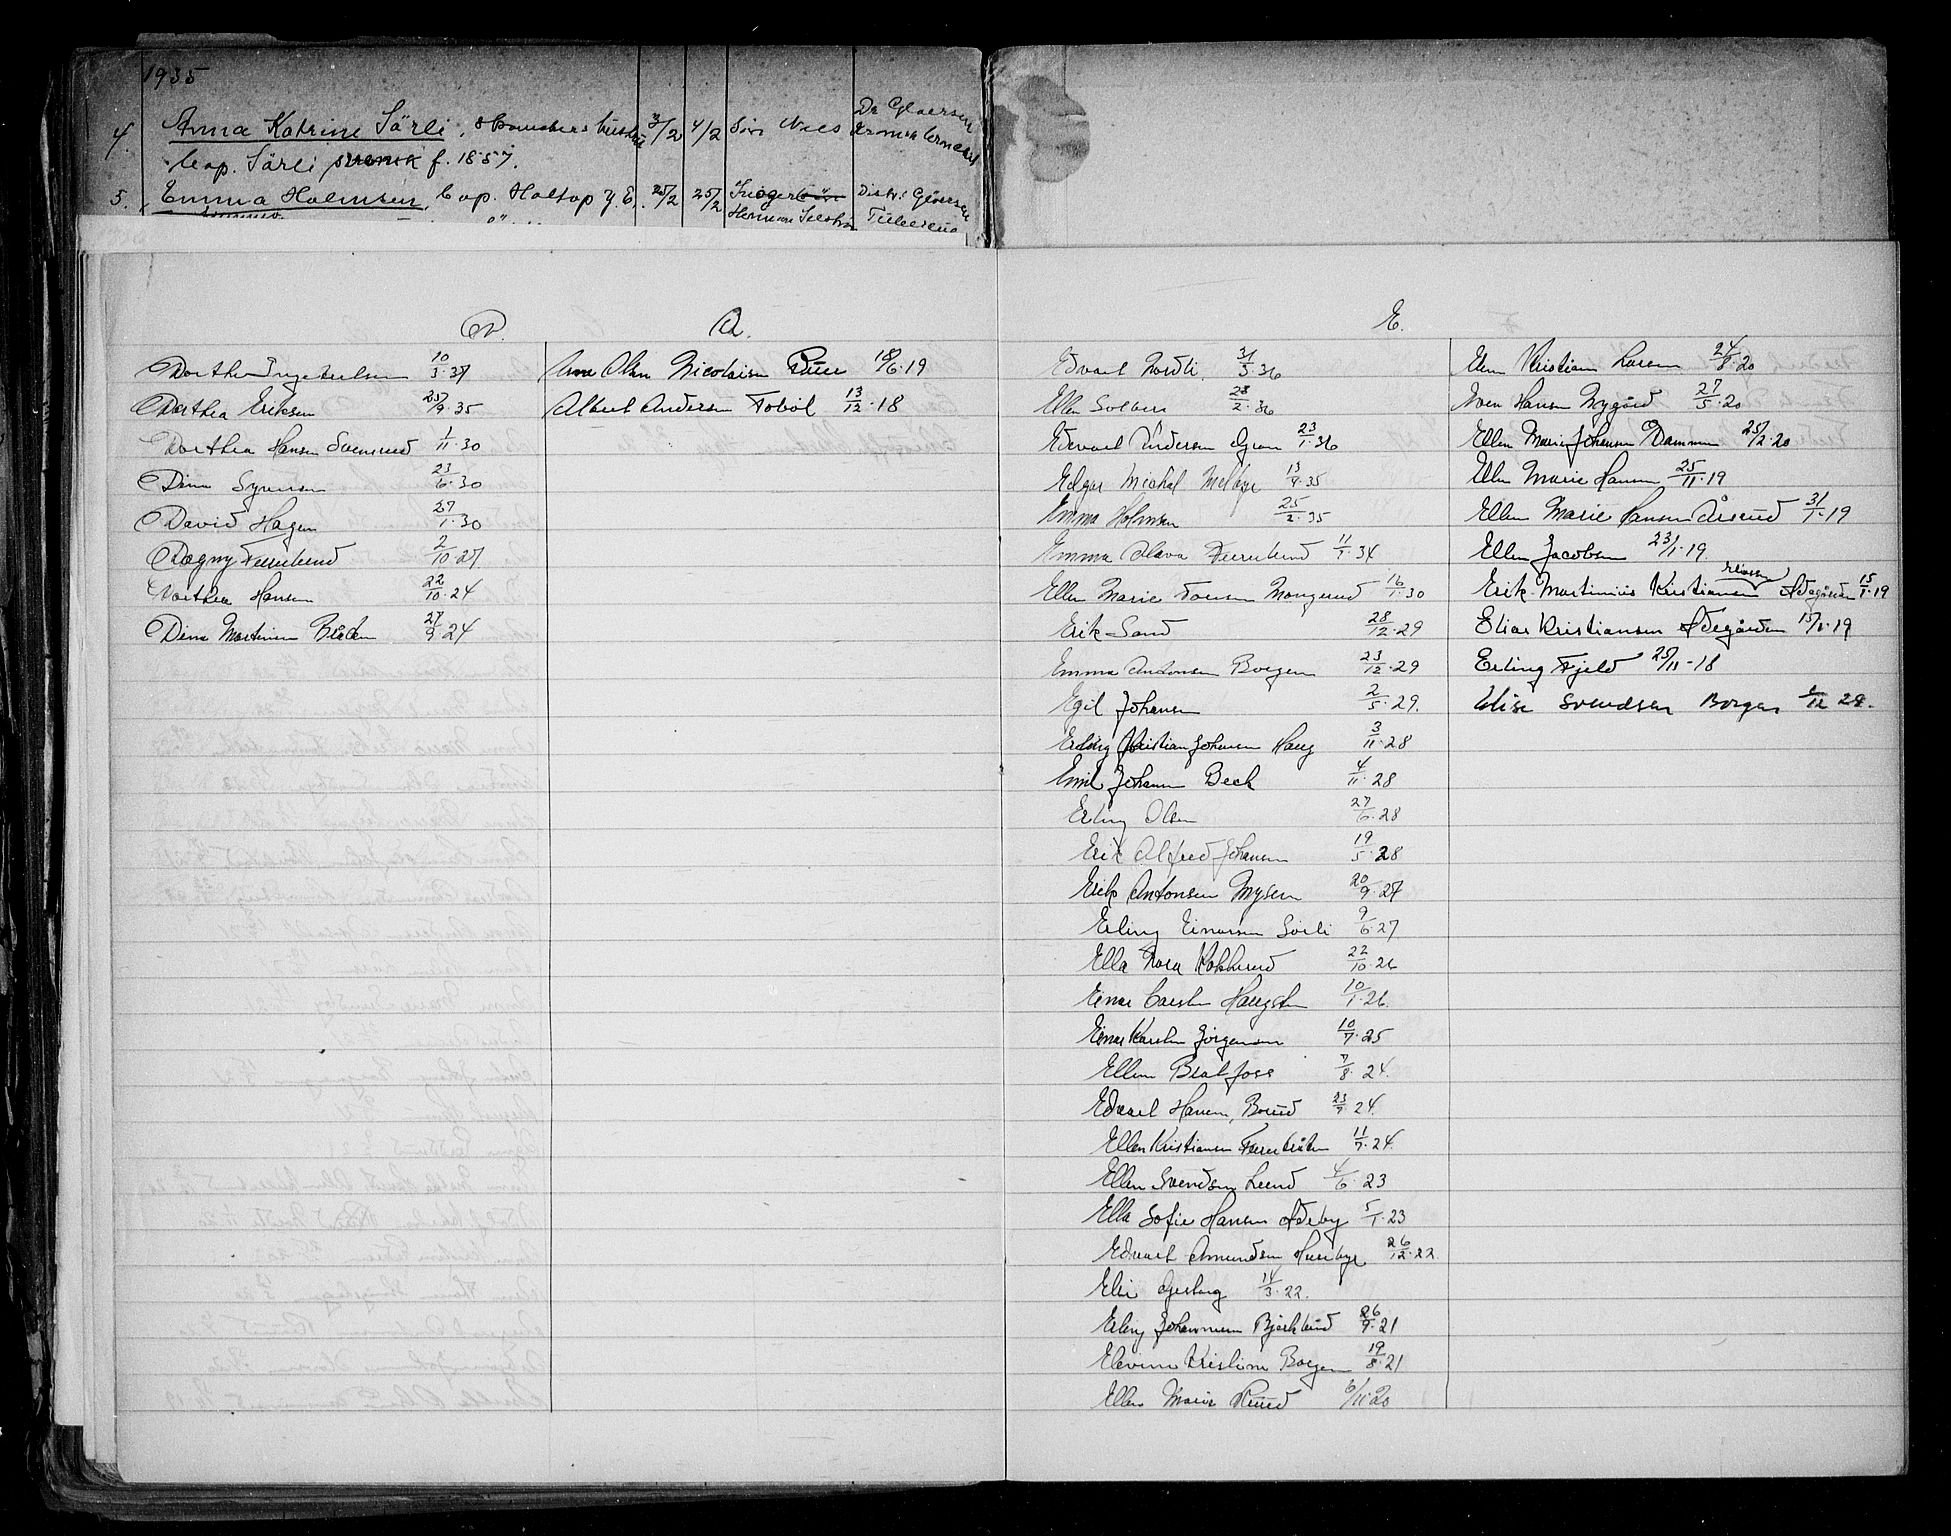 1935
4. Anna Katrine Särli, 3/2 4/2 Nils Dr Gløersen
Cap. Särli f. 1857.
5. Emma Holmsen, Cap. Holtop 25/2 25/2 Distr. Gløersen
Herman
D.
Dorthea Ingebretsen 10/3·37
Dorthea Eriksen 25/9·35
Dorthea Hansen Svensrud 1/11·30
Dina Syversen 23/6·30
David Hagen 27/1·30
Dagny Fururlund 2/10·27
Dorthea Hansen 22/10·24
Dina Martinsen Bråten 27/9·24
A.
Olsen Nicolaisen Ruu 18/6·19
Albert Andersen Fobøl 13/12·18
E.
Edvart Nordli 31/5·36
Ellen Solberg 28/2·36
Edvart Andersen Gran 23/1·36
Edgar Michal Melbye 13/9·35
Emma Holmsen 25/2·35
Emma Olava Fururlund 11/1·34
Ellen Marie Monsrud 16/1·30
Erik Sand 28/12·29
Emma Antonsen Borgen 23/12·29
Egil Johansen 2/5·29.
Erling Kristian Johansen Haug 3/11·28
Emil Johansen Beck 4/11·28
Erling Olsen 27/6·28
Erik Alfred Johansen 19/5·28
Erik Antonsen Mysen 20/9·27
Erling Einarsen Sørli 9/6·27
Ella Nora 22/10·26
Einar Carsten Haugsten 10/1·26.
Einar Karsten Jørgensen 10/7·25
Ellen Bratfoss 7/8·24.
Edvart Hansen, Borud 23/7·24.
Ellen Kristiansen 11/7·24.
Ellen Svendsen Lund 4/6·23
Ella Sofie Hansen Ødeby 5/1·23
Edvart Amundsen Huseby 26/12·22
Elsi 14/3·22.
Erling Johannesen Bjerklund 26/9·21
Elevine Kristine Borgen 19/8·21
Ellen Marie Ruud 6/11·20
Ellen Kristiansen Larsen 24/8·20
Even Hansen Nygård 27/5·20
Ellen Marie Johansen Dammen 25/2·20
Ellen Marie Hansen 25/11·19
Ellen Marie Hansen Åsrud 31/1·19
Ellen Jacobsen 23/1·19.
Erik Martinius Kristiansen Ødegården 15/1·19
Elias Kristiansen Ødegården 15/1·19
Erling Fjeld 25/11-18
Elise Svendsen Borgen /12 28.